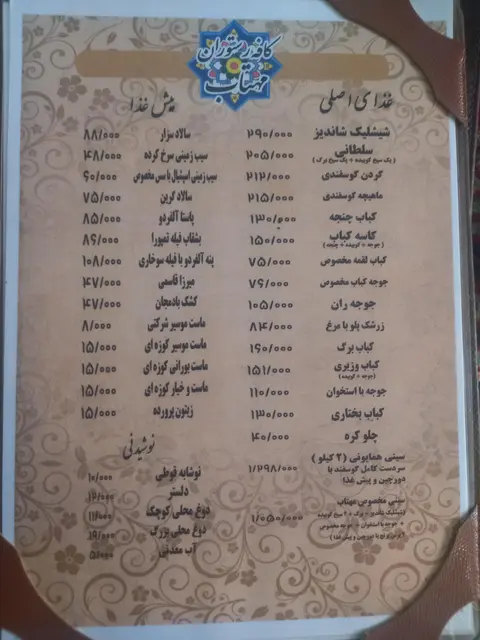 کافه رستوران
مهتاب
غذای اصلی
شیشلیک شاندیز ۲۹۰/۰۰۰
سلطانی ۲۰۵/۰۰۰
( یک سیخ کوبیده + یک سیخ برگ )
گردن گوسفندی ۲۱۲/۰۰۰
ماهیچه گوسفندی ۲۱۵/۰۰۰
کباب چنجه ۱۳۰/۰۰۰
کاسه کباب ۱۵۰/۰۰۰
( جوجه + کوبیده + چنجه )
کباب لقمه مخصوص ۷۵/۰۰۰
جوجه کباب مخصوص ۷۶/۰۰۰
جوجه ران ۱۰۵/۰۰۰
زرشک پلو با مرغ ۸۴/۰۰۰
کباب برگ ۱۶۰/۰۰۰
کباب وزیری ۱۵۱/۰۰۰
( جوجه + کوبیده )
جوجه با استخوان ۱۱۰/۰۰۰
کباب بختیاری ۱۳۰/۰۰۰
چلو کره ۴۰/۰۰۰
سینی همایونی ( ۲ کیلو )
سردست کامل گوسفند با ۱/۲۹۸/۰۰۰
دورچین و پیش غذا
سینی مخصوص مهتاب
۱/۰۵۰/۰۰۰
+ جوجه با استخوان + جوجه مخصوص
پیش غذا
سالاد سزار ۸۸/۰۰۰
سیب زمینی سرخ کرده ۴۸/۰۰۰
سیب زمینی اسپشیال با سس مخصوص ۶۰/۰۰۰
سالاد گرین ۷۵/۰۰۰
پاستا آلفردو ۸۵/۰۰۰
بشقاب فیله تمپورا ۸۶/۰۰۰
پنه آلفردو با فیله سوخاری ۱۰۸/۰۰۰
میرزا قاسمی ۴۷/۰۰۰
کشک بادمجان ۴۷/۰۰۰
ماست موسیر شرکتی ۸/۰۰۰
ماست موسیر کوزه ای ۱۵/۰۰۰
ماست بورانی کوزه ای ۱۵/۰۰۰
ماست و خیار کوزه ای ۱۵/۰۰۰
زیتون پرورده ۱۵/۰۰۰
نوشیدنی
نوشابه قوطی ۱۰/۰۰۰
دلستر ۱۲/۰۰۰
دوغ محلی کوچک ۱۱/۰۰۰
دوغ محلی بزرگ ۱۹/۰۰۰
آب معدنی ۵/۰۰۰